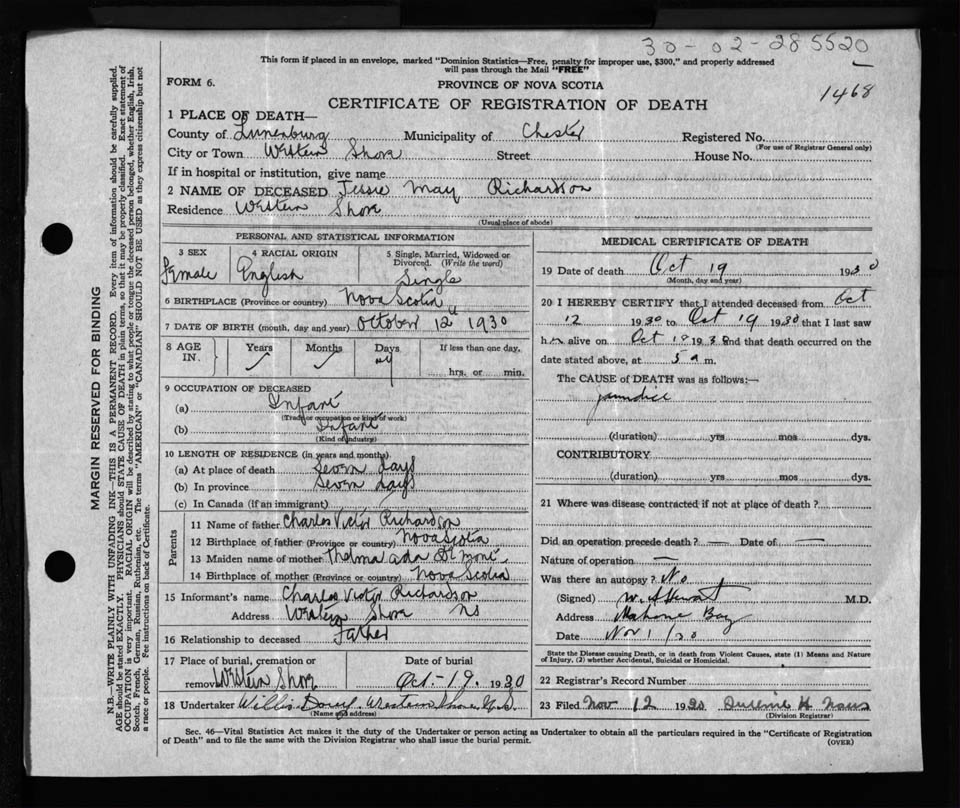 30-02-285520
This form if placed in an envelope, marked "Dominion Statistics—Free, penalty for improper use, $300," and properly addressed
will pass through the Mail "FREE"
FORM 6.
PROVINCE OF NOVA SCOTIA
1468
CERTIFICATE OF REGISTRATION OF DEATH
1 PLACE OF DEATH—
County of Lunenburg Municipality of Chester Registered No.
(For use of Registrar General only)
City or Town Western Shore Street House No.
If in hospital or institution, give name
2 NAME OF DECEASED Jessie May Richardson
Residence Western Shore
(Usual place of abode)
PERSONAL AND STATISTICAL INFORMATION
3 SEX 4 RACIAL ORIGIN 5 Single, Married, Widowed or
Divorced. (Write the word)
Female English Single
6 BIRTHPLACE (Province or country) Nova Scotia
7 DATE OF BIRTH (month, day and year) October 12 1930
8 AGE IN. Years Months Days If less than one day,
hrs. or min.
9 OCCUPATION OF DECEASED
(a) Infant
(Trade or occupation or kind of work)
(b) Infant
(Kind of industry)
10 LENGTH OF RESIDENCE (in years and months)
(a) At place of death Seven days
(b) In province Seven days
(c) In Canada (if an immigrant)
Parents
11 Name of father Charles Victor Richardson
12 Birthplace of father (Province or country) Nova Scotia
13 Maiden name of mother Thelma Ada
14 Birthplace of mother (Province or country) Nova Scotia
15 Informant's name Charles Victor Richardson
Address Western Shore NS
16 Relationship to deceased Father
17 Place of burial, cremation or Date of burial
removal Western Shore Oct-19. 1930
18 Undertaker Willis Western Shore
(Name and address)
MEDICAL CERTIFICATE OF DEATH
19 Date of death Oct 19 1930
(Month, day and year)
20 I HEREBY CERTIFY that I attended deceased from Oct
12 1930 to Oct 19 1930 that I last saw
her alive on Oct 19 1930 and that death occurred on the
date stated above, at 5 a m.
The CAUSE OF DEATH was as follows:—
jaundice
(duration) yrs mos dys.
CONTRIBUTORY
(duration) yrs mos dys.
21 Where was disease contracted if not at place of death?
Did an operation precede death? — Date of —
Nature of operation —
Was there an autopsy? No
(Signed) M.D.
Address Mahone Bay
Date Nov 1/30
State the Disease causing Death, or in death from Violent Causes, state (1) Means and Nature
of Injury, (2) whether Accidental, Suicidal or Homicidal.
22 Registrar's Record Number
23 Filed Nov 12 1930
(Division Registrar)
Sec. 46—Vital Statistics Act makes it the duty of the Undertaker or person acting as Undertaker to obtain all the particulars required in the "Certificate of Registration
of Death" and to file the same with the Division Registrar who shall issue the burial permit.
(OVER)
MARGIN RESERVED FOR BINDING
N.B.—WRITE PLAINLY WITH UNFADING INK—THIS IS A PERMANENT RECORD. Every item of information should be carefully supplied.
AGE should be stated EXACTLY. PHYSICIANS should STATE CAUSE OF DEATH in plain terms, so that it may be properly classified. Exact statement of
OCCUPATION is very important. RACIAL ORIGIN will be described by stating to what people or tongue the deceased person belonged, whether English, Irish,
Scotch, French, German, Russian, Ruthenian, etc. The terms "AMERICAN" or "CANADIAN" SHOULD NOT BE USED as they express citizenship but not
a race or people. Fee instructions on back of Certificate.